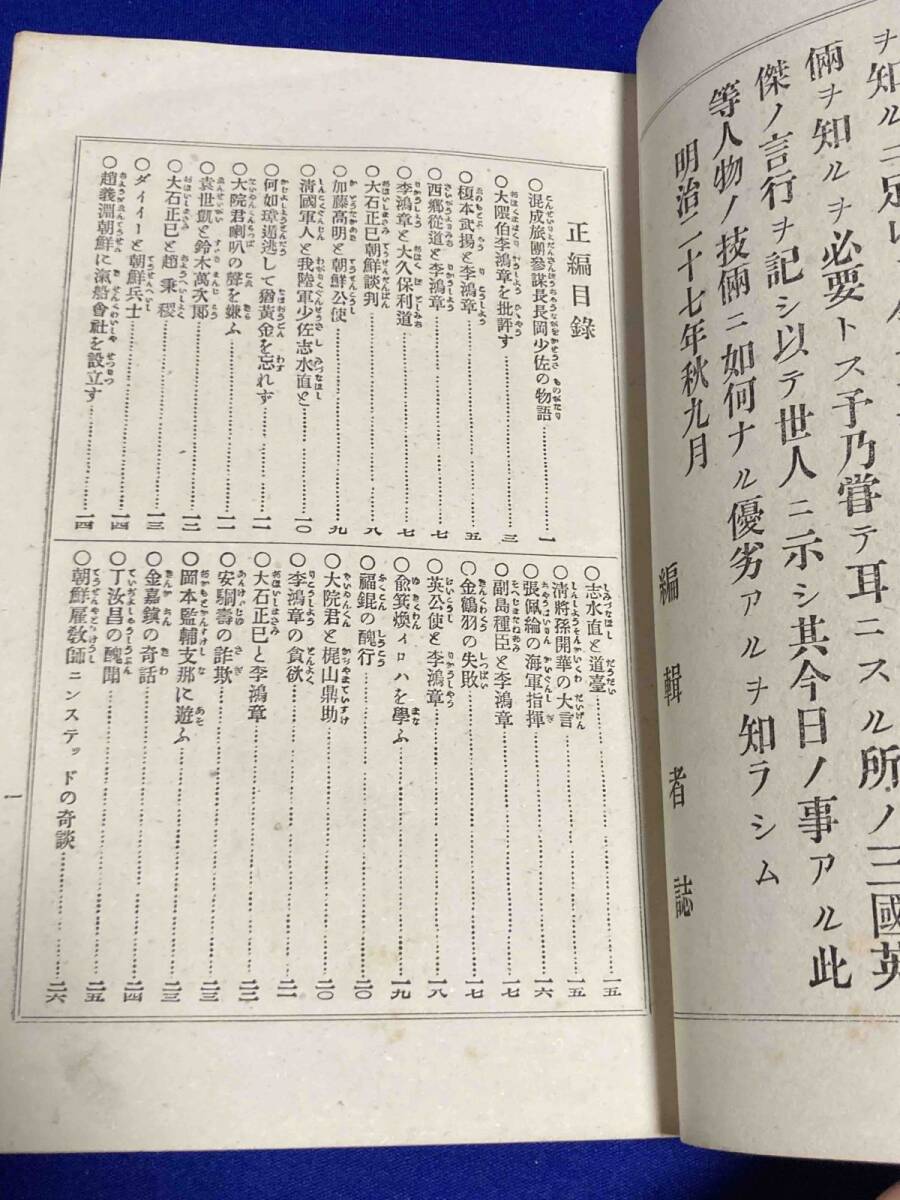 ヲ知ル
倆ヲ知ルヲ必要トス予乃甞テ耳ニスル所ノ三國英
傑ノ言行ヲ記シ以テ世人ニ示シ其今日ノ事アル此
等人物ノ技倆ニ如何ナル優劣アルヲ知ラシム
明治二十七年秋九月
編輯者誌
正編目錄
○混成旅團參謀長長岡少佐の物語……一
○大隈伯李鴻章を批評す……三
○榎本武揚と李鴻章……五
○西鄕從道と李鴻章……七
○李鴻章と大久保利道……七
○大石正巳朝鮮談判……八
○加藤高明と朝鮮公使……九
○淸國軍人と我陸軍少佐志水直と……一〇
○何如璋遁逃して猶黃金を忘れず……一一
○大院君喇叭の聲を嫌ふ……一一
○袁世凱と鈴木萬次郎……一二
○大石正巳と趙秉稷……一三
○ダイイーと朝鮮兵士……一四
○趙義淵朝鮮に滊船會社を設立す……一四
○志水直と道臺……一五
○淸將孫開華の大言……一五
○張佩綸の海軍指揮……一六
○副島種臣と李鴻章……一七
○金鶴羽の失敗……一七
○英公使と李鴻章……一八
○兪箕煥イロハを學ふ……一九
○福錕の醜行……二〇
○大院君と梶山鼎助……二〇
○李鴻章の貪欲……二一
○大石正巳と李鴻章……二二
○安駉壽の詐欺……二三
○岡本監輔支那に遊ふ……二三
○金嘉鎭の奇話……二四
○丁汝昌の醜聞……二五
○朝鮮雇敎師ニンステッドの奇談……二六
一